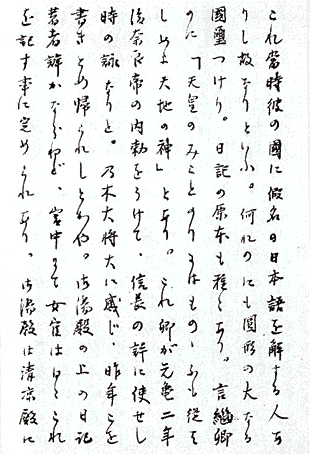 これ當時彼の國に假名の日本語を解する人あ
りし故なりといふ。何れのにも圓形の大なる
國璽つけり。日記の原本も種々あり。言繼卿
のに「天皇のみことのりにはものゝふも從は
しめよ天地の神」とあり。これ卿が元亀二年
後奈良帝の内勅をうけて、信長の許に使せし
時の詠なりと。乃木大将大に感じ、昨年こを
書きとめ帰られしとかや。御湯殿の上の日記
著者詳かならねど、宮中にて女官は日々これ
を記す事に定められあり。御湯殿は清凉殿に